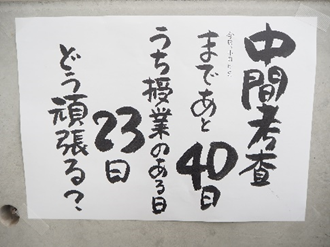 中間考査
まであと
40日
うち授業のある日
23日
どう頑張る？